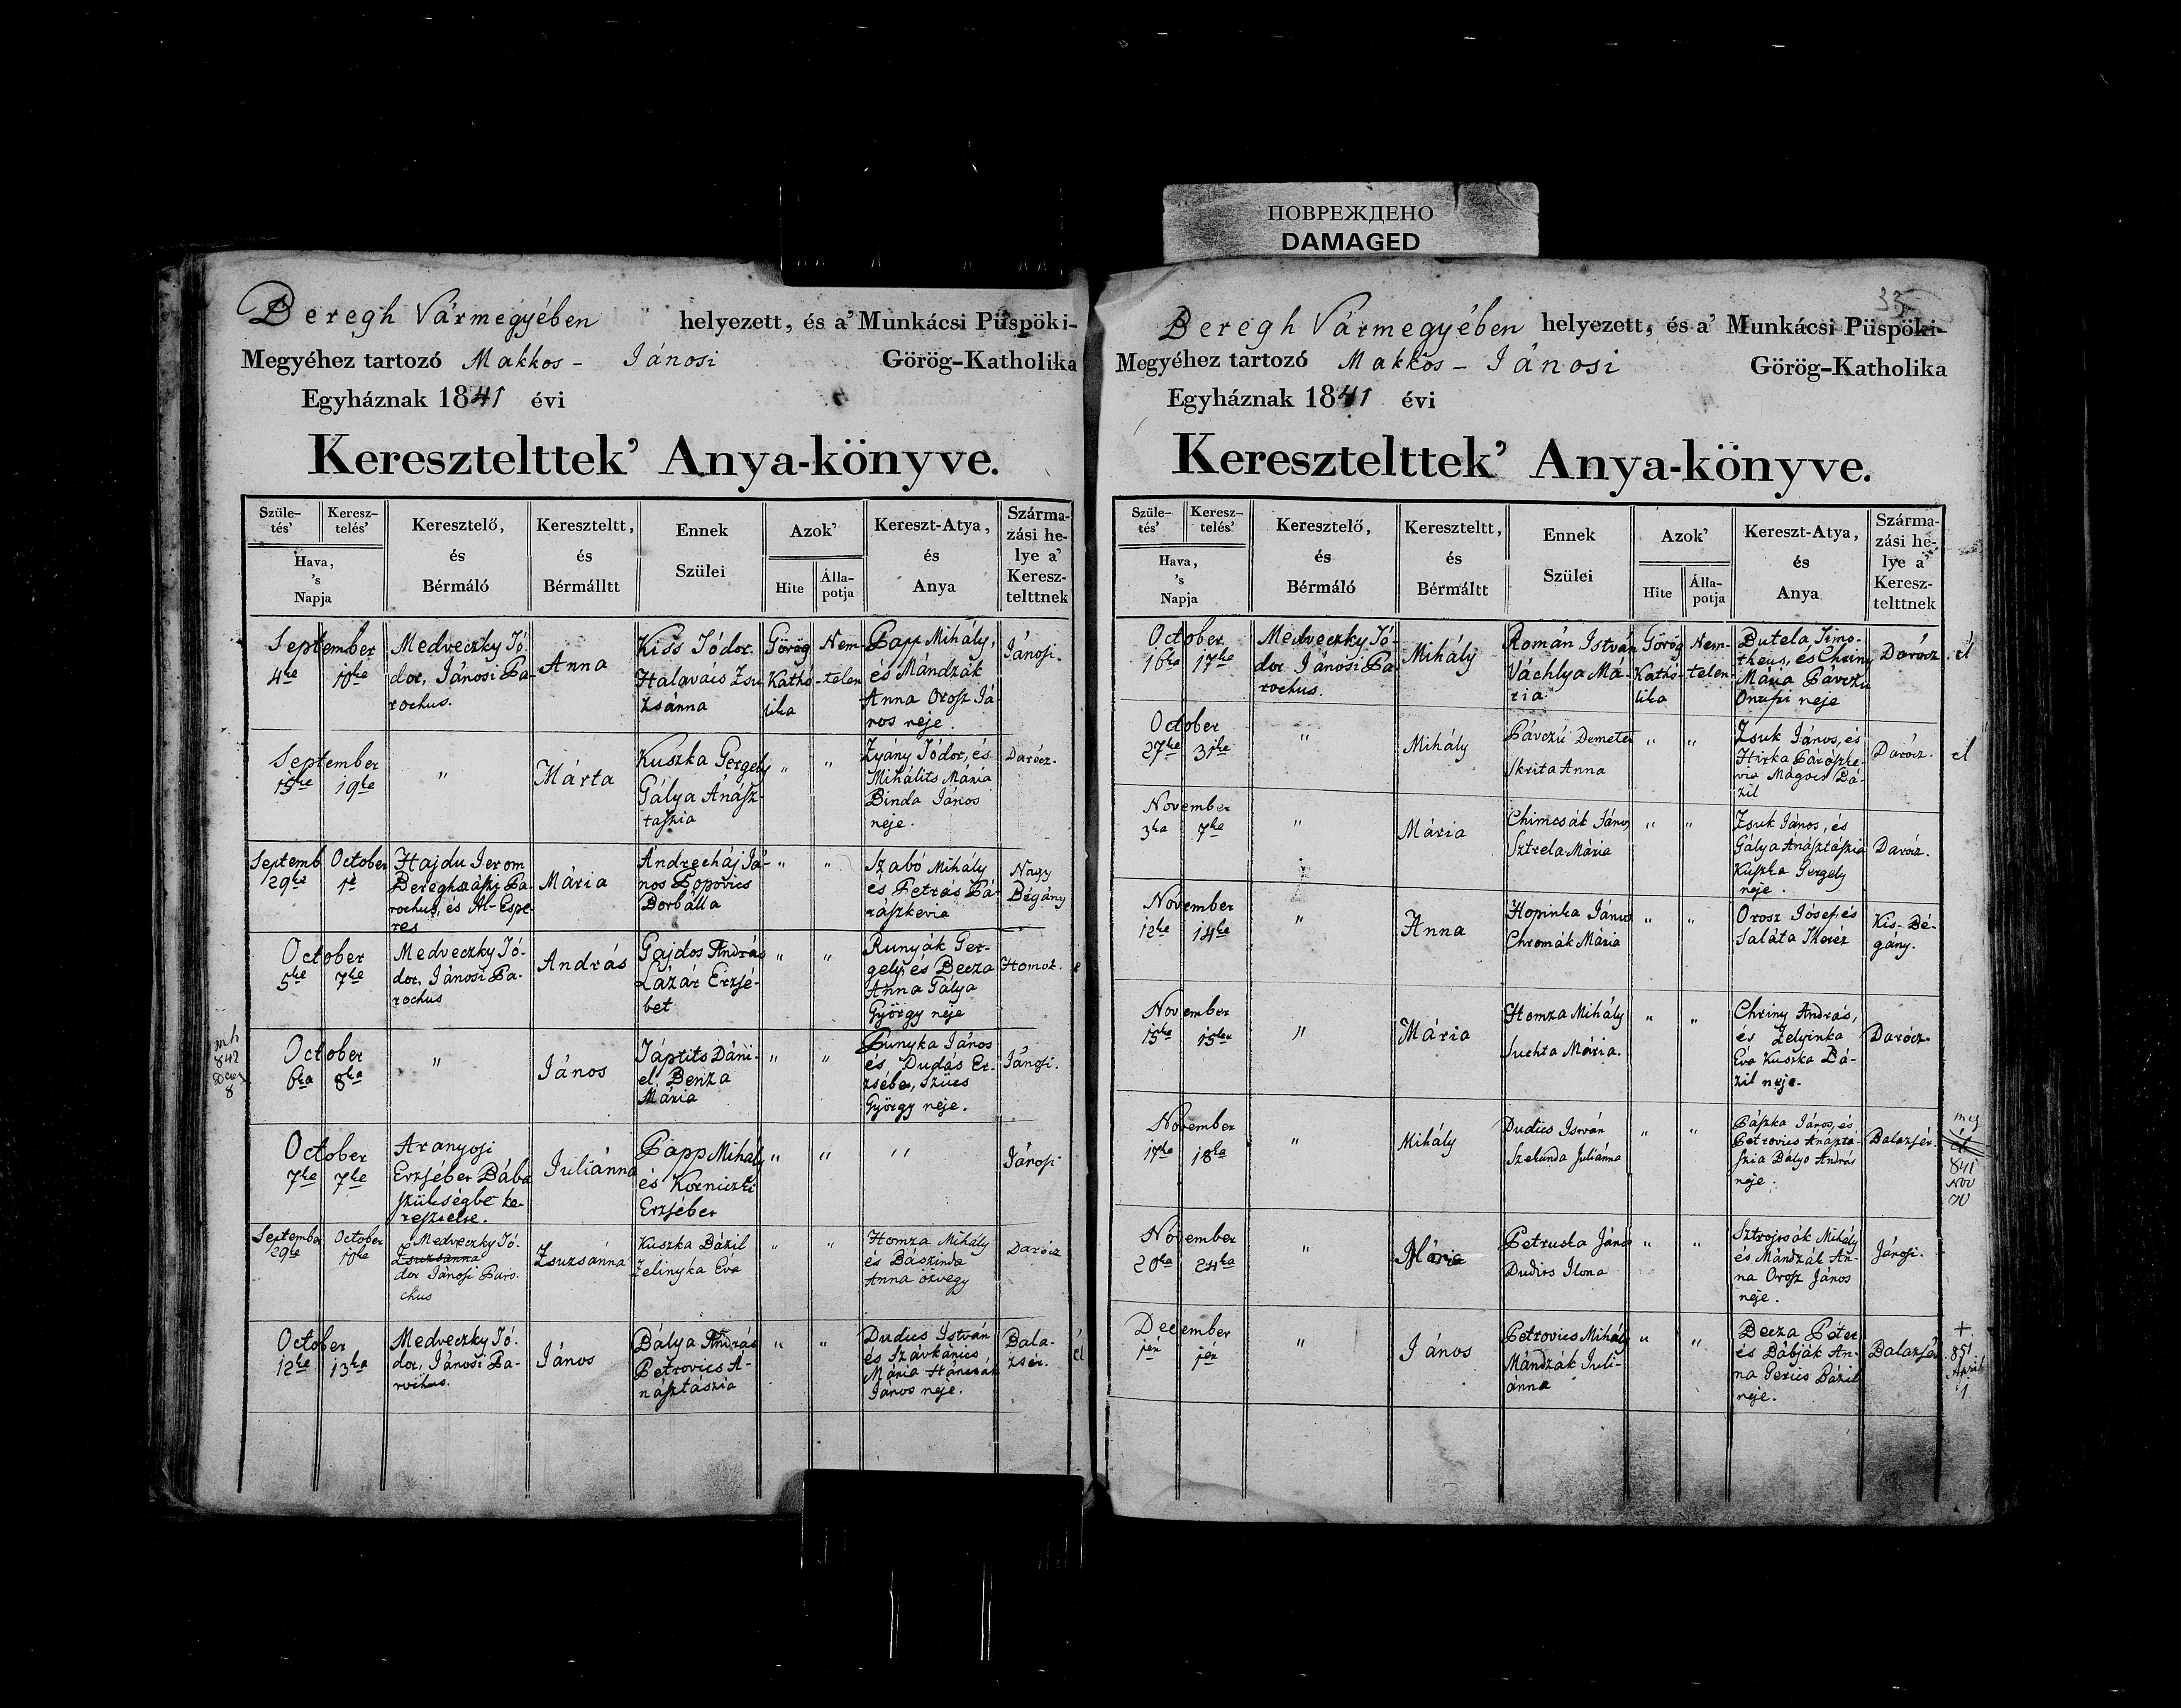 ПОВРЕЖДЕНО
DAMAGED
Beregh Vármegyében helyezett, és a' Munkácsi Püspöki-
Megyéhez tartozó Makkos - Jánosi Görög-Katholika
Egyháznak 1841 évi
Keresztelttek' Anya-könyve.
Szüle-
tés'
Keresz-
telés'
Hava,
's
Napja
Keresztelő,
és
Bérmáló
Kereszteltt,
és
Bérmálltt
Ennek
Szülei
Azok'
Hite
Álla-
potja
Kereszt-Atya,
és
Anya
Szárma-
zási he-
lye a'
Keresz-
telttnek
September
4ke 10ke
Medveczky Jó-
dor, Jánosi Pa-
rochus.
Anna
Kiss Jódor
Halavács Zsu
zsánna
Görög
Kathó-
lika
Nem-
telen
Papp Mihály,
és Mándzák
Anna Orosz Já-
nos neje.
Jánosi.
September
15ke 19ke
"
Márta
Kuszka Gergely
Gálya Anász-
taszia
" "
Zyány Jódor, és
Mihálits Mária
Binda János
neje.
Darócz.
Septemb October
29ke 1é
Hajdu Jerom
Bereghszászi Pa-
rochus, és Al-Espe-
res
Mária
Andrecháj Já-
nos Popovics
Borbálla
" "
Szabó Mihály
és Petrás Pá-
rászkevia
Nagy
Bégány
October
5ke 7ke
Medveczky Jó-
dor, Jánosi Pa-
rochus
András
Gajdos András
Lázár Erzsé-
bet
" "
Runyák Ger-
gely, és Becza
Anna Gálya
György neje
Homok.
842
8
October
6ka 8ka
"
János
Jáptits Dáni-
el, Benza
Mária
" "
Punyka János
és Dudás Er-
zsébet, Szücs
György neje.
Jánosi.
October
7ke 7ke
Aranyosi
Erzsébet Bába
szükségbe ke-
resztelte.
Juliánna
Papp Mihály
és Korniczki
Erzsébet
" "
"
Jánosi
September October
29ke 10ke
Medveczky Jó-
Zsuzsanna
dor Jánosi Paro-
chus
Zsuzsánna
Kuszka Bázil
Zelinyka Eva
" "
Homza Mihály
és Bászinda
Anna özvegy
Darócz
October
12ke 13ka
Medveczky Jó-
dor, Jánosi Pa-
rochus.
János
Bálya András
Petrovics A-
násztászia
" "
Dudics István
és Szávkánics
Mária Háncsák
János neje.
Bala-
zsér.
él
33
Beregh Vármegyében helyezett, és a' Munkácsi Püspöki-
Megyéhez tartozó Makkos - Jánosi Görög-Katholika
Egyháznak 1841 évi
Keresztelttek' Anya-könyve.
Szüle-
tés'
Keresz-
telés'
Hava,
's
Napja
Keresztelő,
és
Bérmáló
Kereszteltt,
és
Bérmáltt
Ennek
Szülei
Azok'
Hite
Álla-
potja
Kereszt-Atya,
és
Anya
Szárma-
zási he-
lye a'
Keresz-
telttnek
October
16ka 17ke
Medveczky Jó-
dor Jánosi Pa
rochus.
Mihály
Román István
Váchlya Má-
ria
Görög
Kathó-
lika
Nem-
telen
Butela Timo-
theus, és Chriny
Mária Pávczu
Onufri neje
Darócz
él
October
27ke 31ke
"
Mihály
Pávczú Demeter
Skrita Anna
" "
Zsuk János, és
Hirka Páraszke-
via Mágocs Bá-
zil
Darócz.
él
November
3ka 7ke
"
Mária
Chimcsák János
Sztrela Mária
" "
Zsuk János, és
Gálya Anásztászia
Kuszka Gergely
neje.
Darócz.
November
12ke 14ke
"
Anna
Hopinka János
Chromák Mária
" "
Orosz József, és
Saláta Teréz
Kis-Bé-
gány.
November
15ke 15ke
"
Mária
Homza Mihály
Suchta Mária.
" "
Chriny András,
és Zelyinka
Eva Kuszka Bá-
zil neje.
Darócz.
November
17ke 18ka
"
Mihály
Dudics István
Szekunda Juliánna
" "
Pászka János, és
Petrovics Anászta-
szia Bálya András
neje.
Balazsér.
meg
él
841
Nov
November
20ka 24ka
"
Mária
Petruska János
Dudics Ilona
" "
Sztrojcsák Mihály
és Mándzák An-
na Orosz János
neje.
Jánosi.
December
1én 1én
"
János
Petrovics Mihály
Mándzák Juli-
ánna
" "
Becza Péter
és Bábják An-
na Gerics Bázil
neje.
Balazsér
+
851
April
1.